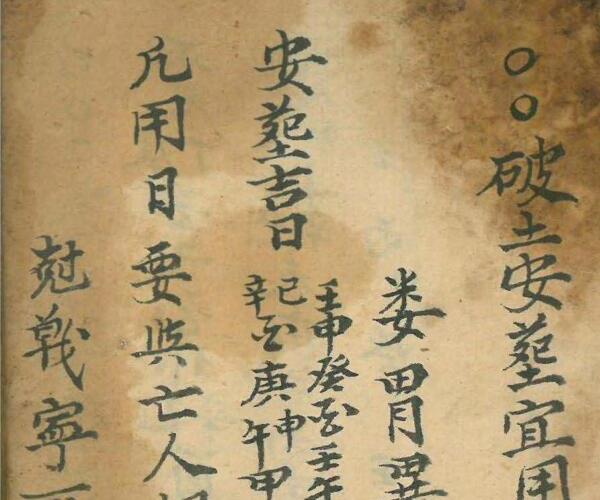 ○○破土安塟宜用
娄胃
安塟吉日
壬申癸酉壬午
己辛酉庚申午甲
凡用日要與亡人
尅戰寧